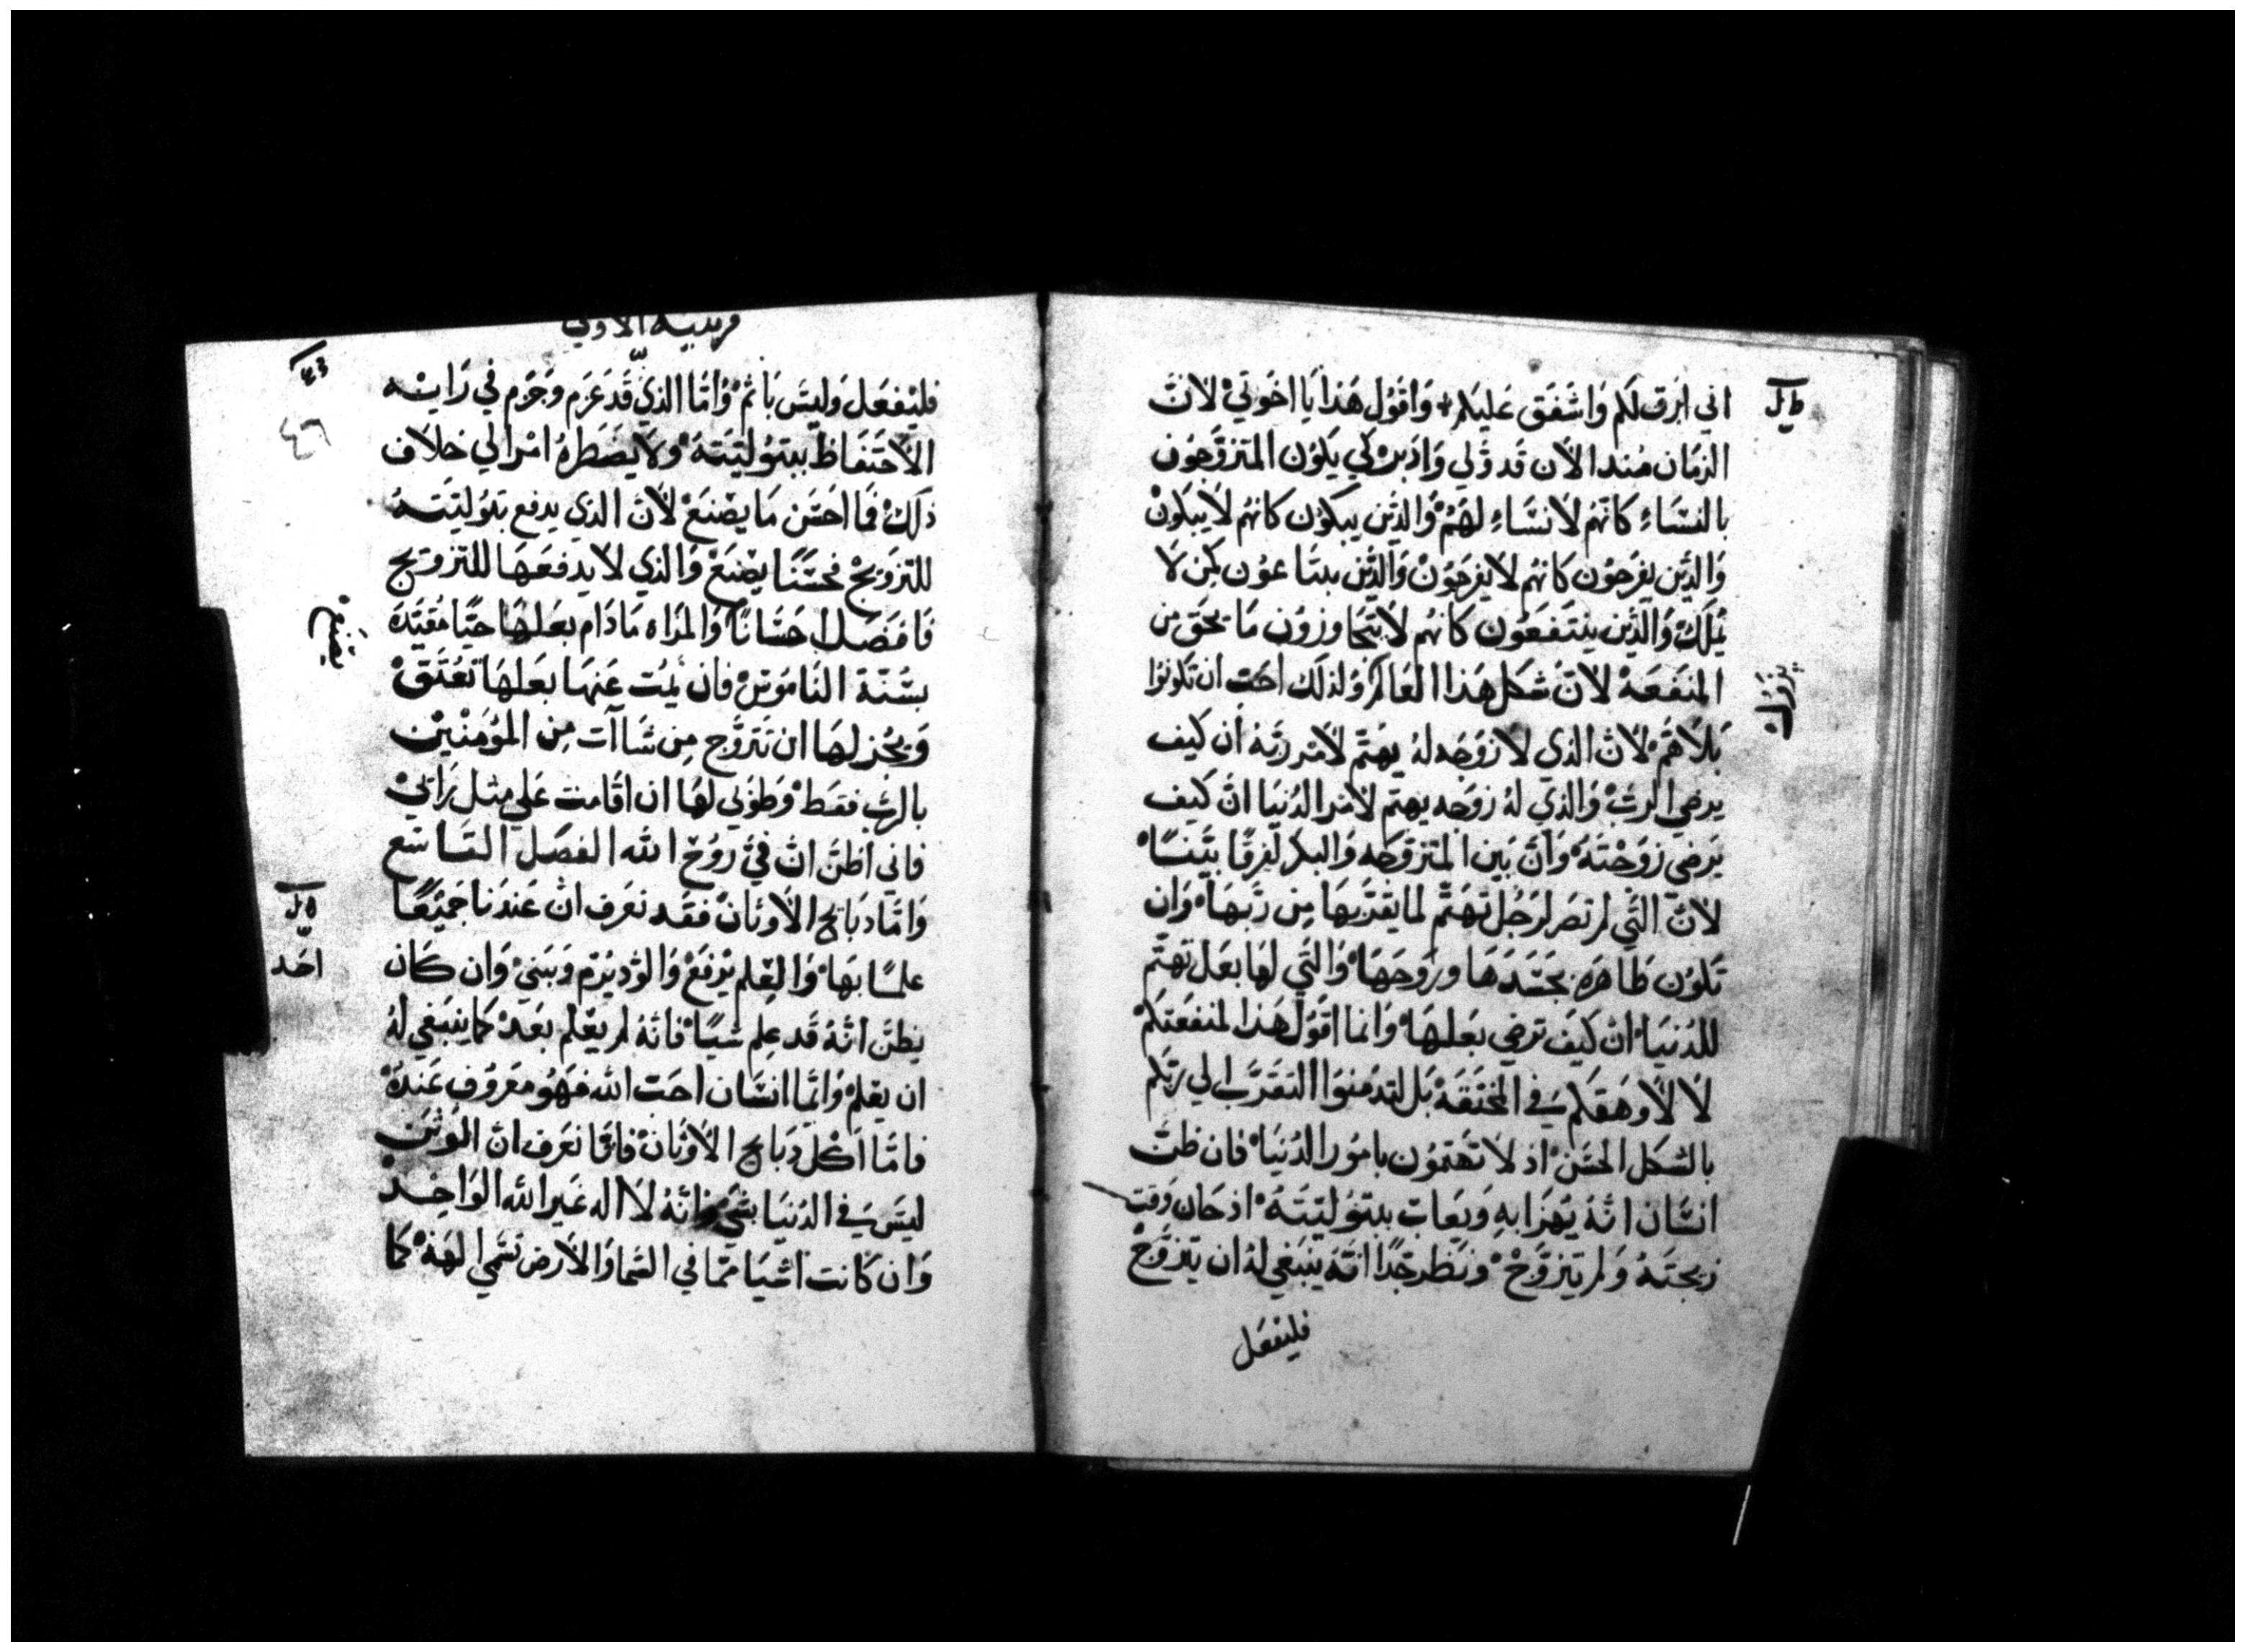 اني ارق لكم واشفق عليكم واقول هذا يا اخوتي لانّ
الزمان منذ الان قد ولي وادبر كي يكون المتزوجون
بالنساءِ كانهم لا نساءِ لهم والذين يبكون كانهم لا يبكون
والذين يفرحون كانهم لا يفرحون والذين يبتاعون كمن لا
يملك والذين ينتفعون كانهم لا يتجاوزون ما يحق من
المنفعة لانّ شكل هذا العالم ولذلك احب ان تكونوا
يزول
بلا هم لان الذي لا زوجه له يهتم لامر ربّه ان كيف
يرضي الرب والذي له زوجه يهتم لامر الدنيا انّ كيف
يرضي زوجته وانّ بين المتزوجه والبكر لفرقًا بيّنًا
لانّ التي لم تصر لرجل تهتمّ لما يقرّبها من ربّها وان
تكون طاهره بجسدها وروحها والتي لها بعل تهتم
للدنيا ان كيف ترضي بعلها وانما اقول هذا لمنفعتكم
لا لاوهقكم في المخنقة بل لتدمنوا التقرّب الي ربّكم
بالشكل الحسن اذ لا تهتمون بامور الدنيا فان ظنّ
انسان انه يهزا به ويعاب ببتوليته اذ حان وقت
زيجته ولم يتزوّج ونظر جدًا انّه ينبغي له ان يتزوّج
فليفعل
الاولي
فليفعل وليس ياثم واما الذي قد عزم وجزم في رايه
٤٦
الاحتفاظ ببتوليته ولا يضطره امر الي خلاف
ذلك فما احسن ما يصنع لانّ الذي يدفع بتوليته
للتزويج فحسنًا يصنع والذي لا يدفعها للتزويج
فافضل احسانًا والمراه ما دام بعلها حيًا مقيّدة
بسنّة الناموس فان يمت عنها بعلها تعتق
ويجز لها ان تتزوّج من شاات من المؤمنين
بالرب فقط وطوبي لها ان اقامت علي مثل رائي
فاني اظنّ انّ فيّ روح الله الفصل التاسع
وامّا دبايح الاوثان فقد نعرف انّ عندنا جميعًا
علمًا بها والعلم يرفع والود يرم ويبني وان كان
احد
يظنّ انّه قد علم شيًا فانّه لم يعلم بعد كما ينبغي له
ان يعلم وايّما انسان احب الله فهو معروف عنده
فامّا اكل دبايح الاوثان فانّا نعرف انّ الوثن
ليس في الدنيا بشي وانّه لا اله غير الله الواحد
وان كانت اشيا ممّا في السما والارض تسمي الهة كما